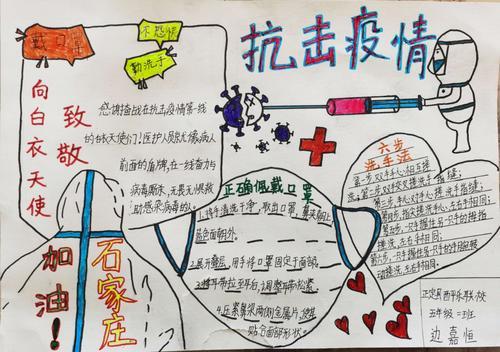 抗击疫情
戴口罩
不恐慌
勤洗手
向白衣天使
致敬
感谢奋战在抗击疫情第一线
的白衣天使们！医护人员是病人
前面的盾牌，在一线奋力与
病毒厮杀，无畏无惧救
助感染病毒的人。
加油！
石家庄
正确佩戴口罩
1.将手清洗干净，取出口罩，鼻夹朝上
蓝色面朝外。
2.展开褶层，用手将口罩固定于面部。
3.将耳带拉至耳后，调整耳带松紧
4.压紧鼻梁两侧金属片，使其
贴合面部形状。
六步
洗手法
第一步，双手手心相互搓
洗，第二步，双手交叉搓洗手指缝，
第三步，手心对手心搓洗手指缝，
第四步，指尖搓洗手心，左右手相同，
第五步，一只手握住另一只手的拇指
搓洗，左右手相同，
第六步，
动搓洗，左右手相同。
正定县西平乐联校
五年级二班
边嘉恒